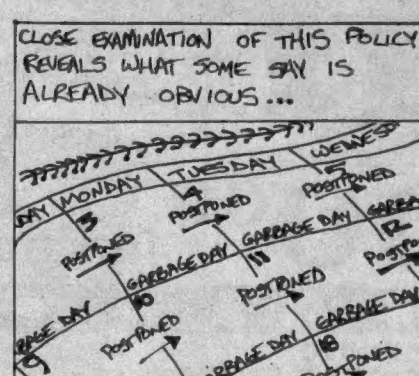 CLOSE EXAMINATION OF THIS POLICY
REVEALS WHAT SOME SAY IS
ALREADY OBVIOUS...
DAY MONDAY TUESDAY WEDNESD
3 4 5
POSTPONED POSTPONED POSTPONED
RBAGE DAY GARBAGE DAY GARBAGE DAY GARBA
9 10 11 12
POSTPONED POSTPONED POSTPO
RBAGE DAY GARBAGE DAY
18
POSTPONED